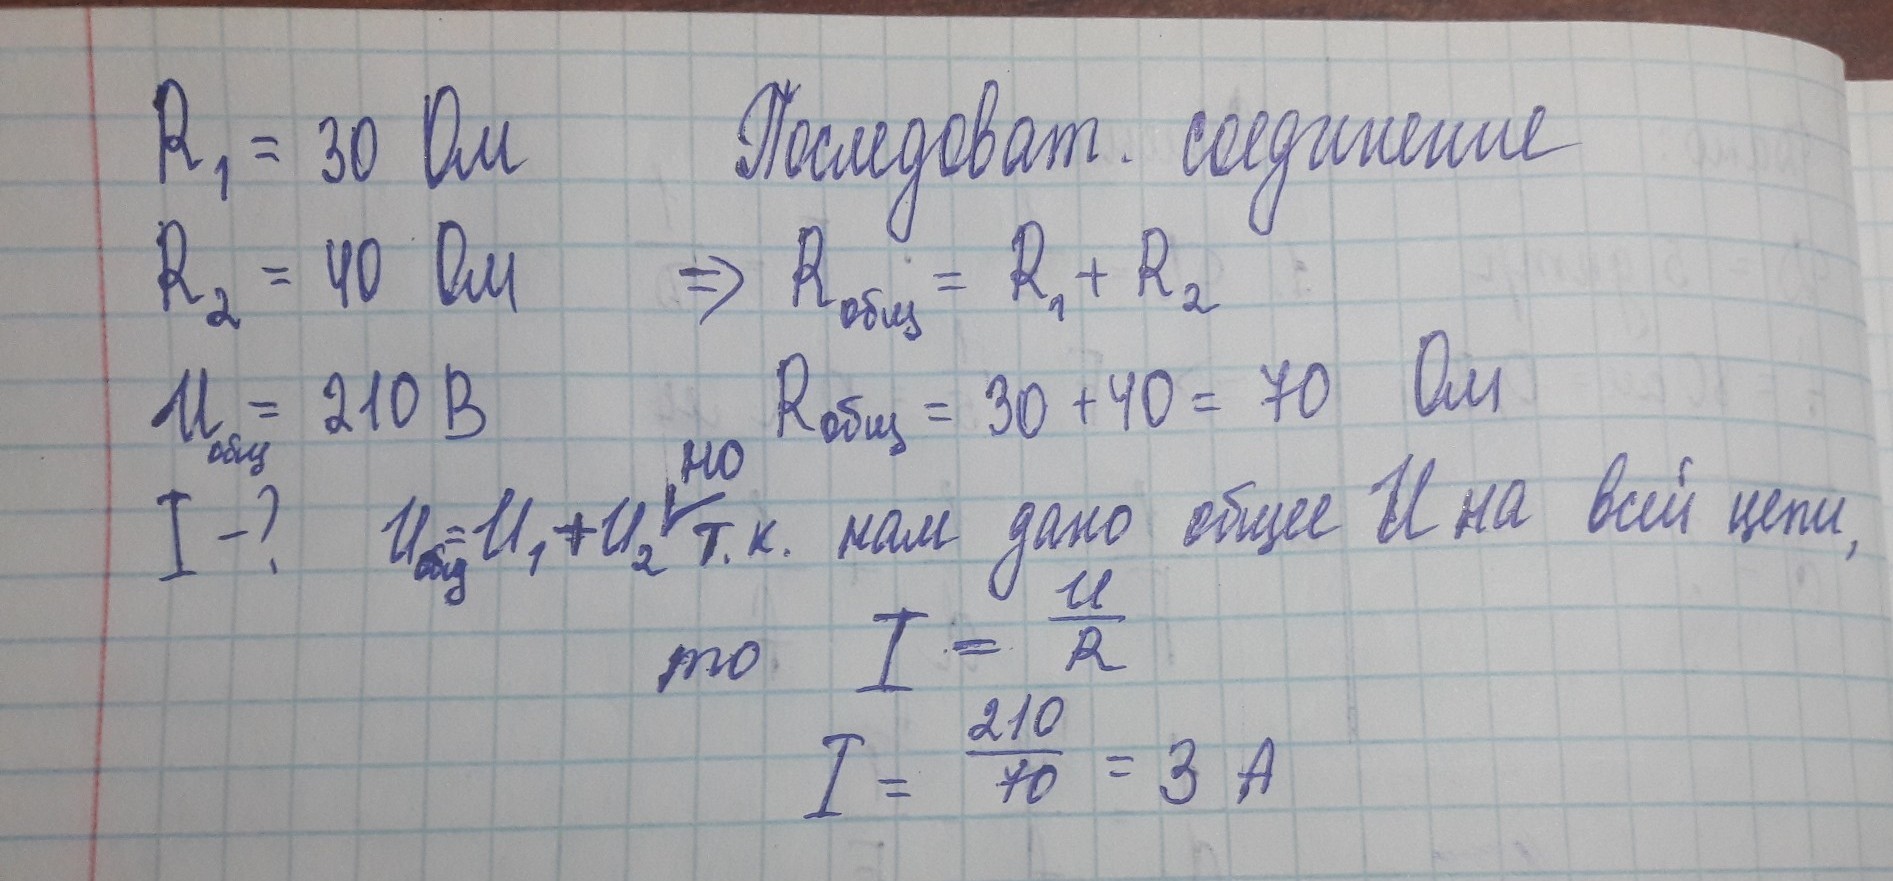 R₁ = 30 Ом Последоват. соединение
R₂ = 40 Ом => Rобщ = R₁ + R₂
Uобщ = 210 В Rобщ = 30 + 40 = 70 Ом
но
I - ? Uобщ = U₁ + U₂ т.к. нам дано общее U на всей цепи,
то I = U/R
I = 210/70 = 3 А